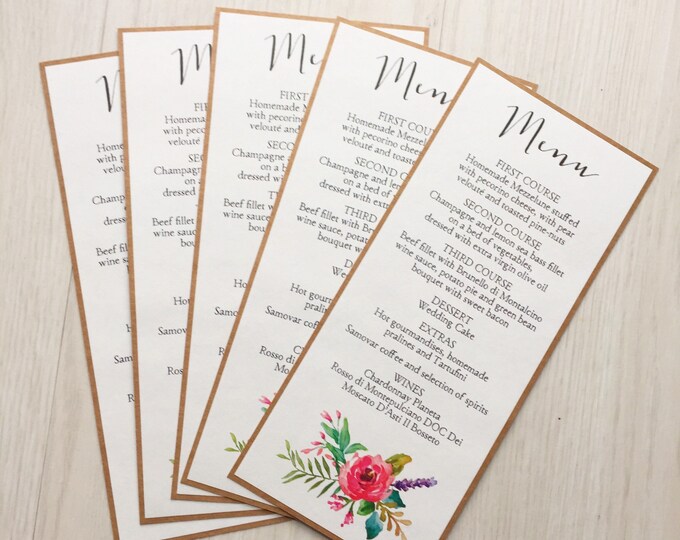 Menu
FIRST COURSE
Homemade Mezzelune stuffed
with pecorino cheese, with pear
velouté and toasted pine-nuts
SECOND COURSE
Champagne and lemon sea bass fillet
on a bed of vegetables,
dressed with extra virgin olive oil
THIRD COURSE
Beef fillet with Brunello di Montalcino
wine sauce, potato pie and green bean
bouquet with sweet bacon
DESSERT
Wedding Cake
EXTRAS
Hot gourmandises, homemade
pralines and Tartufini
Samovar coffee and selection of spirits
WINES
Chardonnay Planeta
Rosso di Montepulciano DOC Dei
Moscato D'Asti Il Bosseto